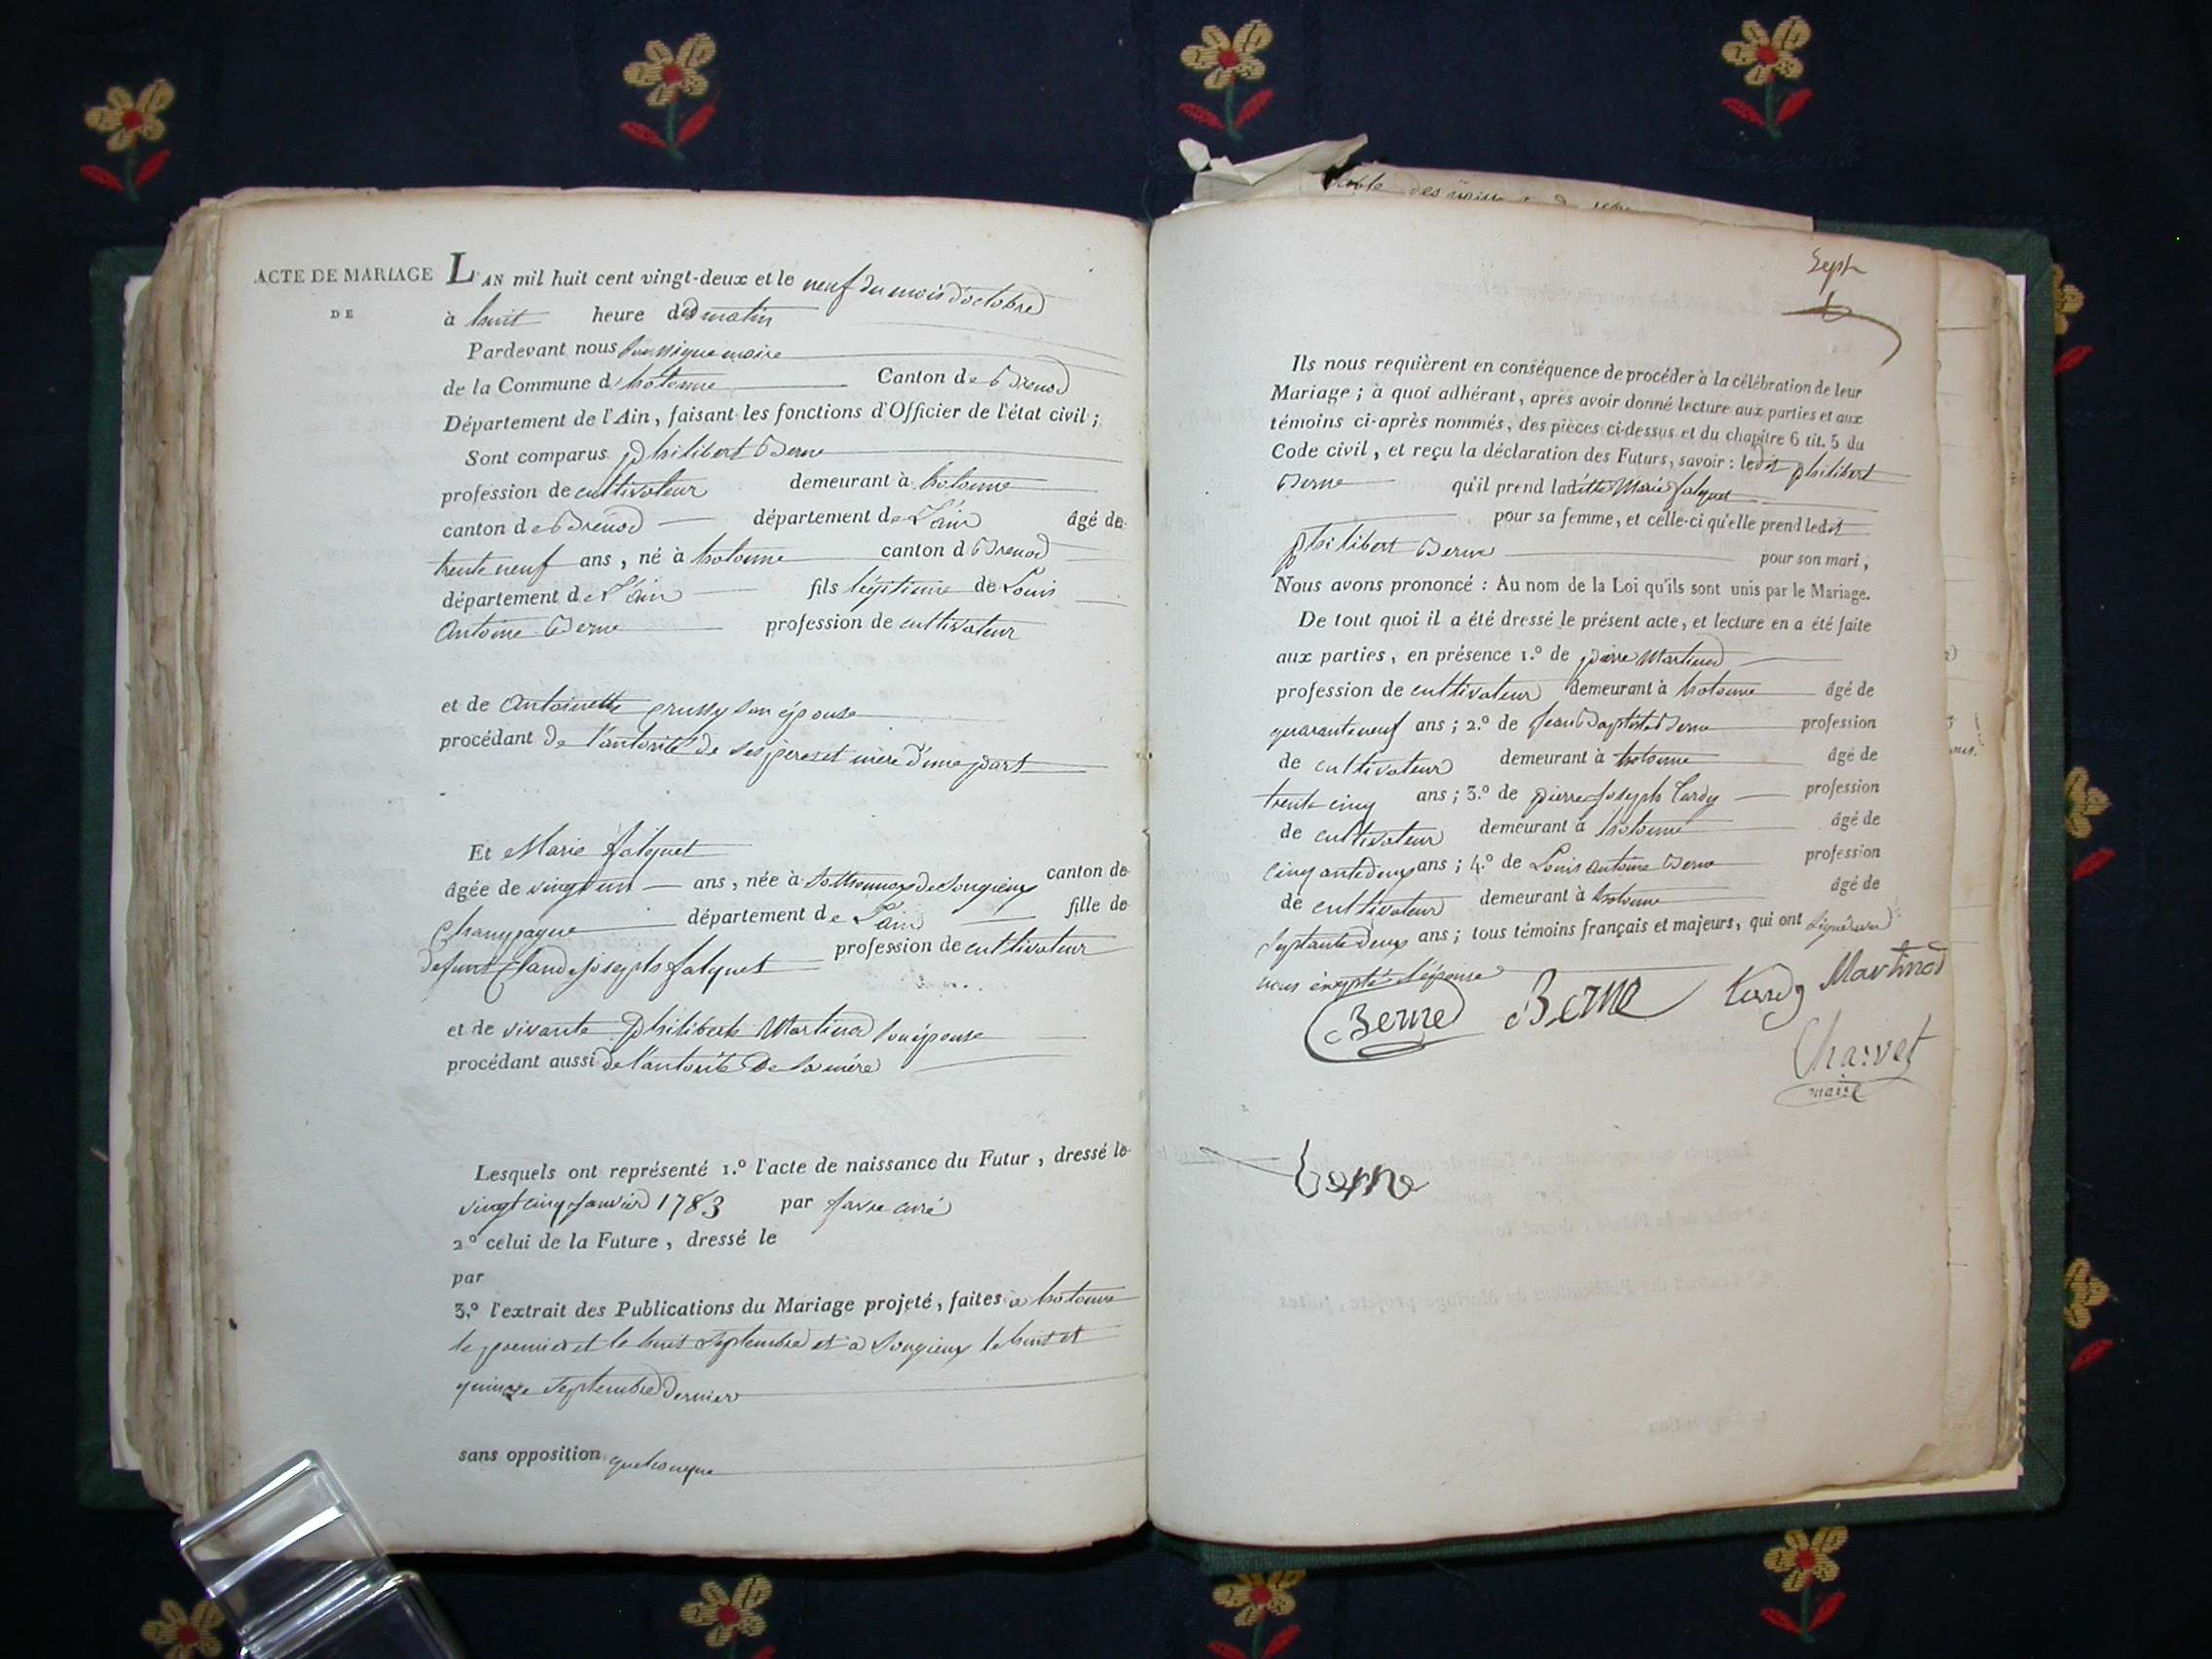 ACTE DE MARIAGE
DE
L'AN mil huit cent vingt-deux et le neuf du mois d'octobre
à huit heure du matin
Pardevant nous soussigné maire
de la Commune d'hotonne Canton de Brenod
Département de l'Ain, faisant les fonctions d'Officier de l'état civil;
Sont comparus philibert Berne
profession de cultivateur demeurant à hotonne
canton de Brenod département de L'ain âgé de
trente neuf ans, né à hotonne canton d Brenod
département de L'ain fils légitime de Louis
Antoine Berne profession de cultivateur
et de Antoinette son épouse
procédant de l'autorité de ses pere et mère d'une part
Et Marie falquet
âgée de vingt un ans, née à Sothonnod de Songieux canton de
Champagne département de L'ain fille de
defunt Claude joseph falquet profession de cultivateur
et de vivante philiberte Martinod son épouse
procédant aussi de l'autorité de sa mère
Lesquels ont représenté 1.º l'acte de naissance du Futur, dressé le
vingt cinq janvier 1783 par favre curé
2º celui de la Future, dressé le
par
3.º l'extrait des Publications du Mariage projeté, faites a hotonne
le premier et le huit septembre et a Songieux le huit et
quinze septembre dernier
sans opposition quelconque
Sept
Ils nous requièrent en conséquence de procéder à la célébration de leur
Mariage; à quoi adhérant, après avoir donné lecture aux parties et aux
témoins ci-après nommés, des pièces ci-dessus et du chapitre 6 tit. 5 du
Code civil, et reçu la déclaration des Futurs, savoir: ledit philibert
Berne qu'il prend laditte Marie falquet
pour sa femme, et celle-ci qu'elle prend ledit
philibert Berne pour son mari,
Nous avons prononcé: Au nom de la Loi qu'ils sont unis par le Mariage.
De tout quoi il a été dressé le présent acte, et lecture en a été faite
aux parties, en présence 1.º de pierre Martinod
profession de cultivateur demeurant à hotonne âgé de
quarante neuf ans; 2.º de Jean Baptiste Berne profession
de cultivateur demeurant à hotonne âgé de
trente cinq ans; 3.º de pierre Joseph Tardy profession
de cultivateur demeurant à hotonne âgé de
cinquante deux ans; 4.º de Louis Antoine Berne profession
de cultivateur demeurant à hotonne âgé de
septante deux ans; tous témoins français et majeurs, qui ont signé avec
nous excepté l'épouse
Berne Berne tardy Martinod
Charvet
maire
berne